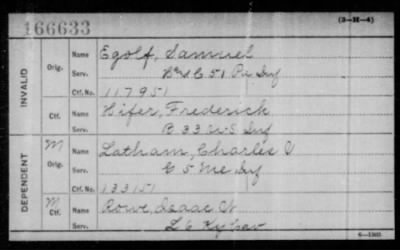 166633
(3-H-4)
INVALID
Orig.
Name Egolf, Samuel
Serv. & C 51 Pa Inf
Ctf. No. 117951
Ctf.
Name Hifer, Frederick
Serv. B 33 U S Inf
DEPENDENT
M Orig.
Name Latham, Charles O
Serv. C 5 Me Inf
Ctf. No. 133151
M Ctf.
Name Rowe, Isaac W
Serv. L 6 Ky Cav